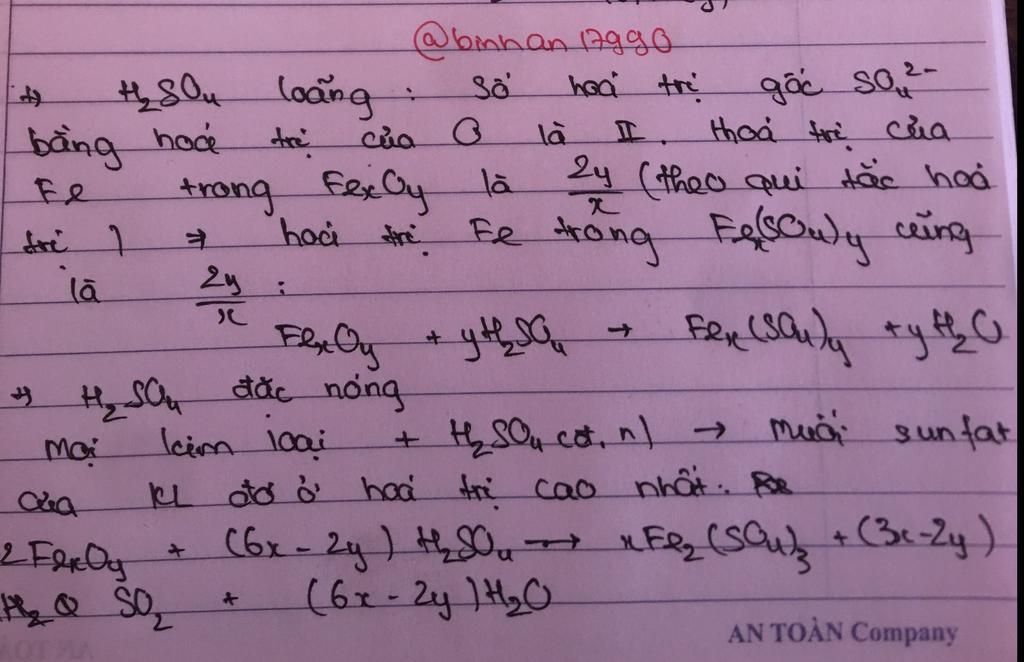 @binhan17990
+) H₂SO₄ loãng : Số hoá trị gốc SO₄²⁻
bằng hoá trị của O là II. Hoá trị của
Fe trong FexOy là 2y/x (theo qui tắc hoá
trị ) ⇒ hoá trị Fe trong Fex(SO₄)y cũng
là 2y/x :
FexOy + yH₂SO₄ → Fex(SO₄)y + yH₂O
+) H₂SO₄ đặc nóng
Mọi kim loại + H₂SO₄ cđ, n) → muối sunfat
của KL đó ở hoá trị cao nhất.
2FexOy + (6x - 2y) H₂SO₄ → xFe₂(SO₄)₃ + (3x-2y)
SO₂ + (6x - 2y)H₂O
AN TOÀN Company